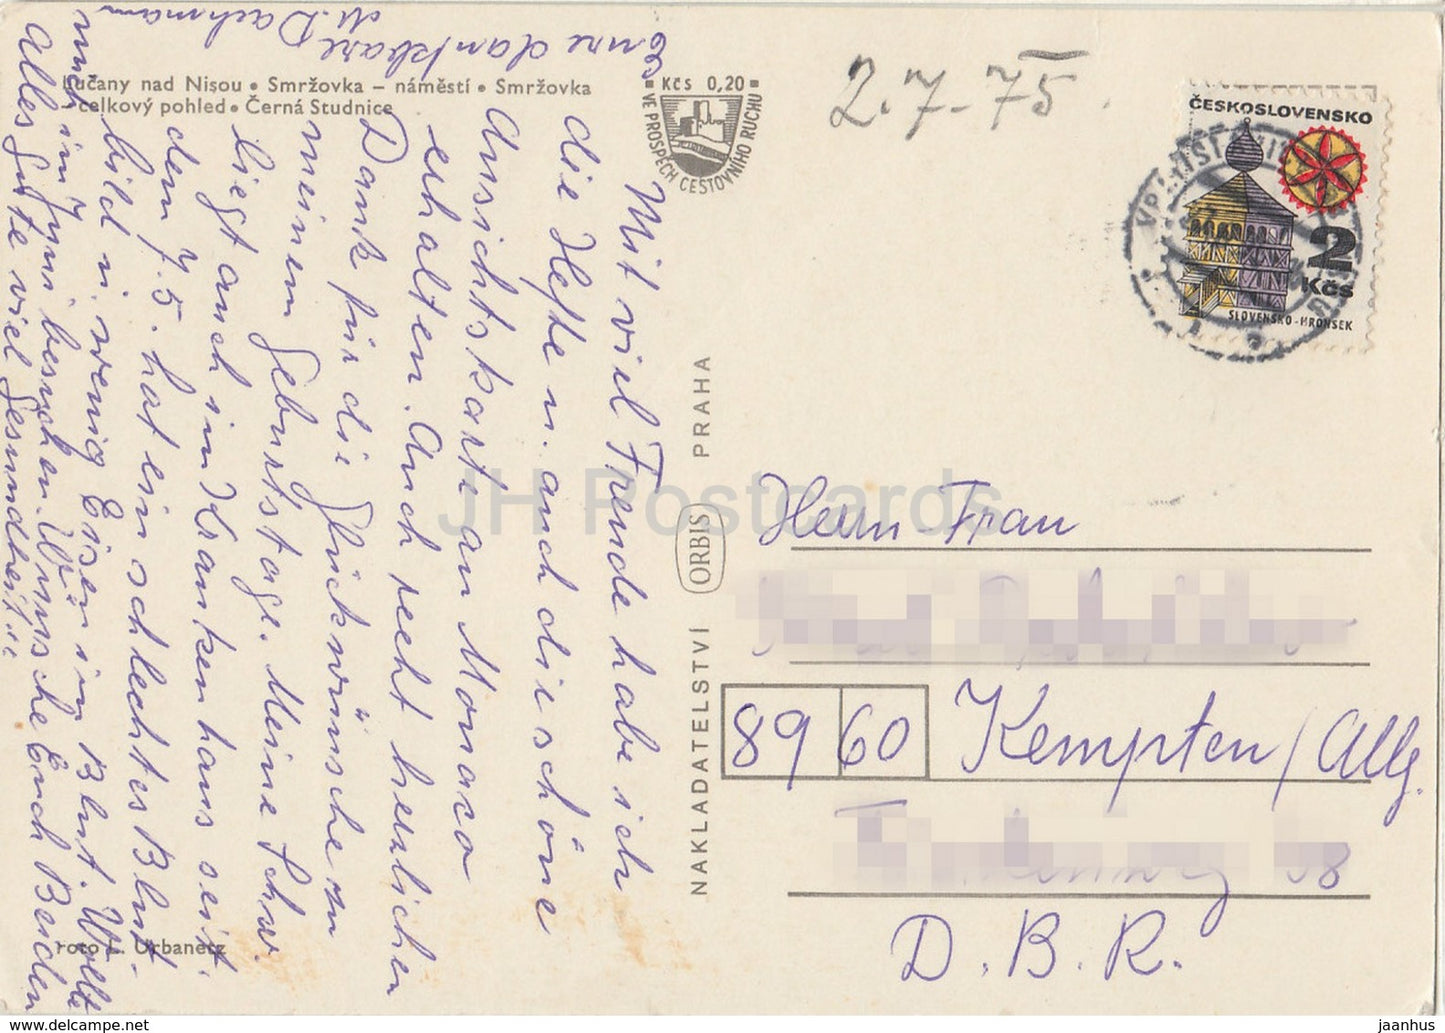 Lučany nad Nisou • Smržovka – náměstí • Smržovka
celkový pohled • Černá Studnice
Kčs 0,20
VE PROSPĚCH CESTOVNÍHO RUCHU
2.7-75.
ČESKOSLOVENSKO
2
Kčs
SLOVENSKO-HRONSEK
Mit viel Freude habe ich
die Hefte u. auch die schöne
Ansichtskarte an Monaco
erhalten. Auch recht herzlichen
Dank für die Glückwünsche zu
meinem Geburtstage. Meine Schw.
liegt auch im Krankenhaus seit
dem 7.5. hat ein schlechtes Blut-
bild u. wenig Eisen im Blut. Wollte
mich im Juni besuchen. Wünsche Euch Beiden
alles Gute viel Gesundheit"
Eure dankbare
M. Dachmann
NAKLADATELSTVÍ ORBIS PRAHA
Herrn Frau
8960 Kempten/Allg.
38
D.B.R.
Foto L. Urbanetz
JH Postcards
www.delcampe.net
jaanhus